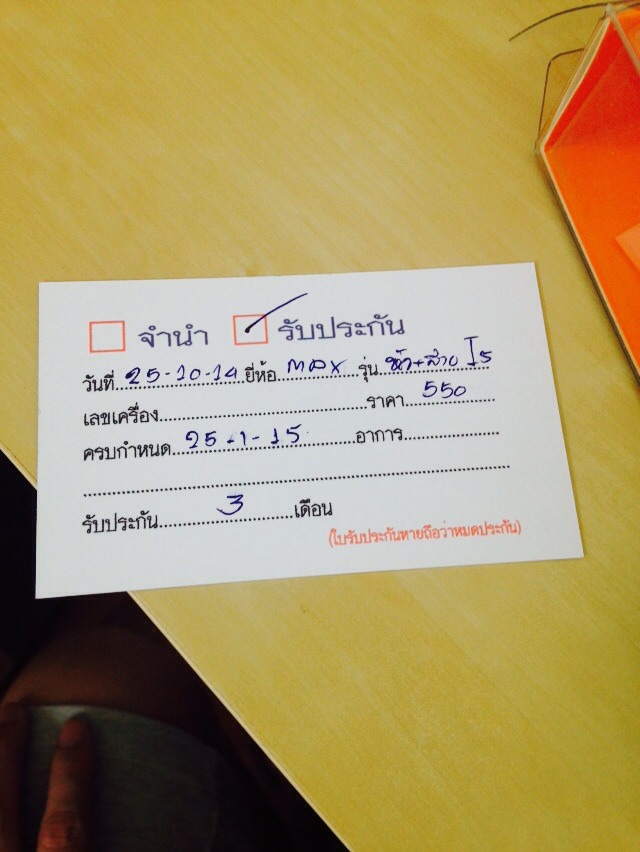 จำนำ รับประกัน
วันที่ 25-10-14 ยี่ห้อ MAX รุ่น หัว+สาย I5
เลขเครื่อง ราคา 550
ครบกำหนด 25-1-15 อาการ
รับประกัน 3 เดือน
(ใบรับประกันหายถือว่าหมดประกัน)